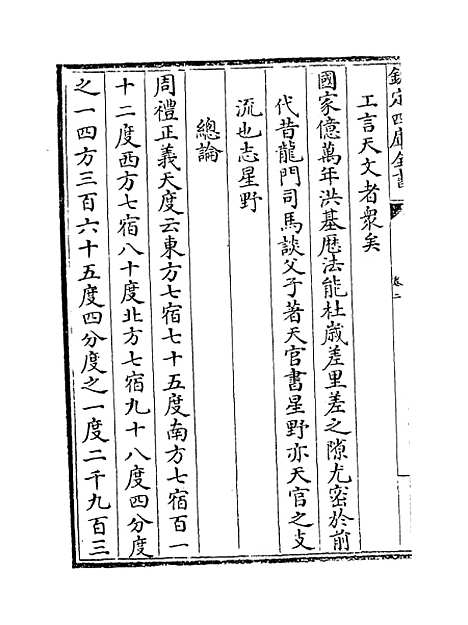 欽定四庫全書
卷二
工言天文者衆矣
國家億萬年洪基厯法能杜歳差里差之隙尤密於前
代昔龍門司馬談父子著天官書星野亦天官之支
流也志星野
總論
周禮正義天度云東方七宿七十五度南方七宿百一
十二度西方七宿八十度北方七宿九十八度四分度
之一四方三百六十五度四分度之一度二千九百三